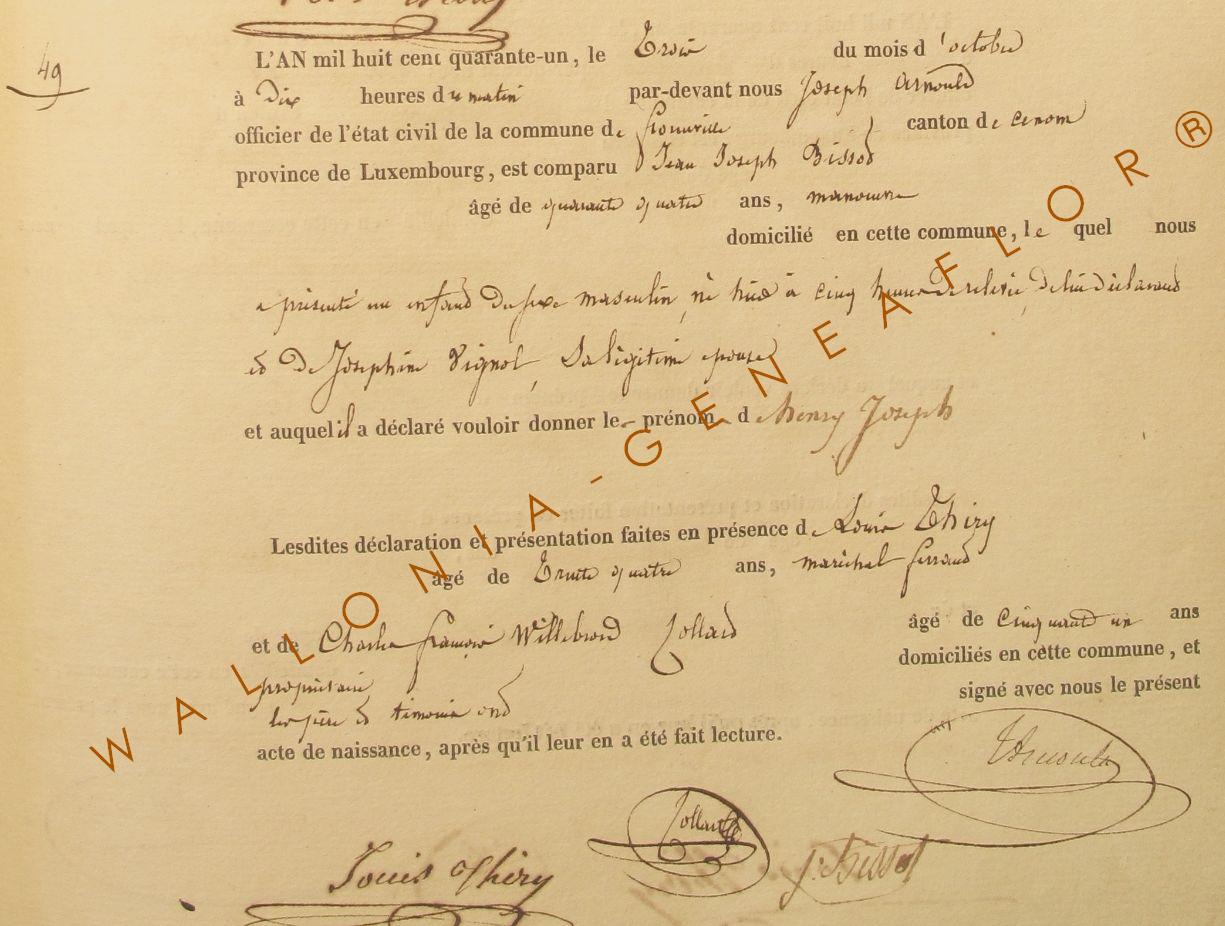 49
L'AN mil huit cent quarante-un, le Trois du mois d'octobre
à Dix heures du matin par-devant nous Joseph Arnould
officier de l'état civil de la commune de canton de
province de Luxembourg, est comparu Jean Joseph Bissot
âgé de quarante quatre ans, manoeuvre
domicilié en cette commune, le quel nous
a présenté un enfand du sexe masculin, né hier à cinq heures de relevée, de lui déclarand
et de Josephine Vignol, Sa légitime epouse
et auquel il a déclaré vouloir donner les prénoms de Henry Joseph
Lesdites déclaration et présentation faites en présence de Louis Thiry
âgé de Trente quatre ans, maréchal ferrand
et de Charles françois Willebrord Collard âgé de cinquante un ans
propriétaire domiciliés en cette commune, et
les père et timoins ond signé avec nous le présent
acte de naissance, après qu'il leur en a été fait lecture.
JArnould
Collard
Louis Thiry J: Bissot
WALLONIA-GENEAFLOR®